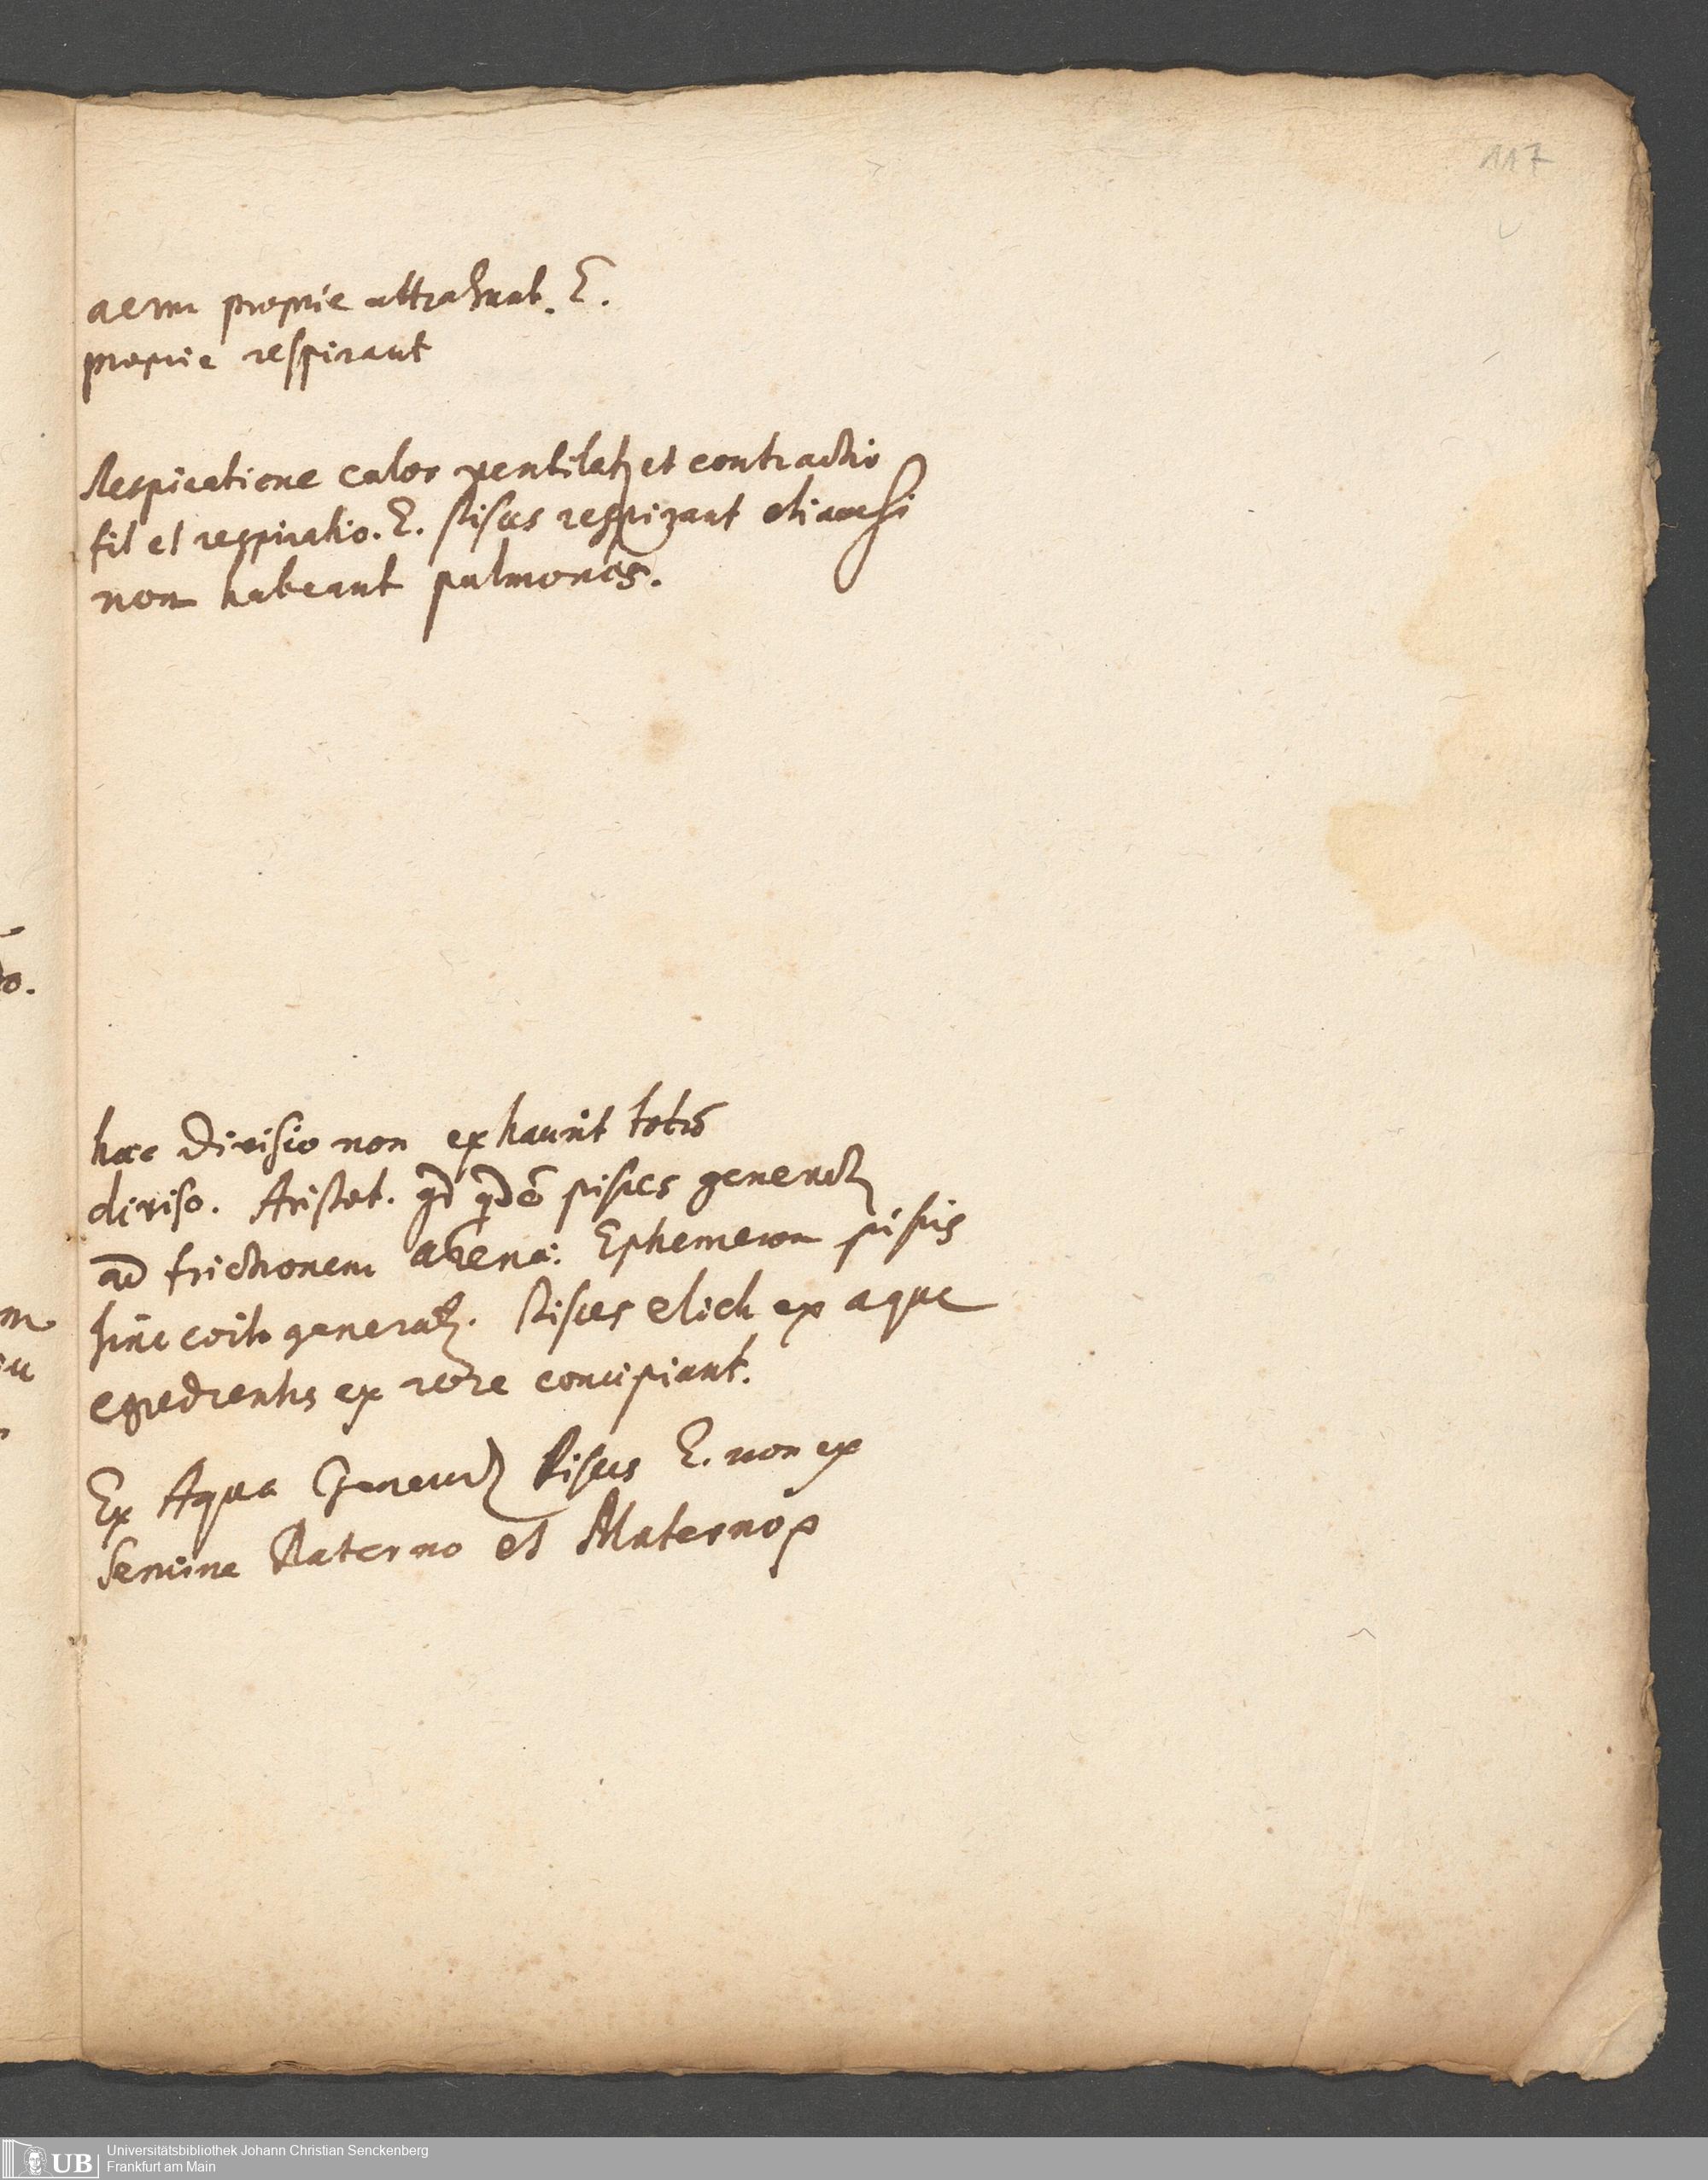 117
aerem proprie attrahunt. E.
proprie respirant
Respiratione calor ventilatʒ et contractio
fit et respiratio. E. Pisces respirant etiamsi
non habeant pulmones.
haec Divisio non exhaurit totū
diviso. Aristot. qd qdē pisces generātʒ
ad frictionem arenae: Ephemeron piscis
sine coitu generatʒ. Pisces elich ex aqua
egredientes ex rore concipiant.
Ex Aqua Generātʒ Pisces E. non ex
Semine Paterno et Materno
Universitätsbibliothek Johann Christian Senckenberg
Frankfurt am Main
UB